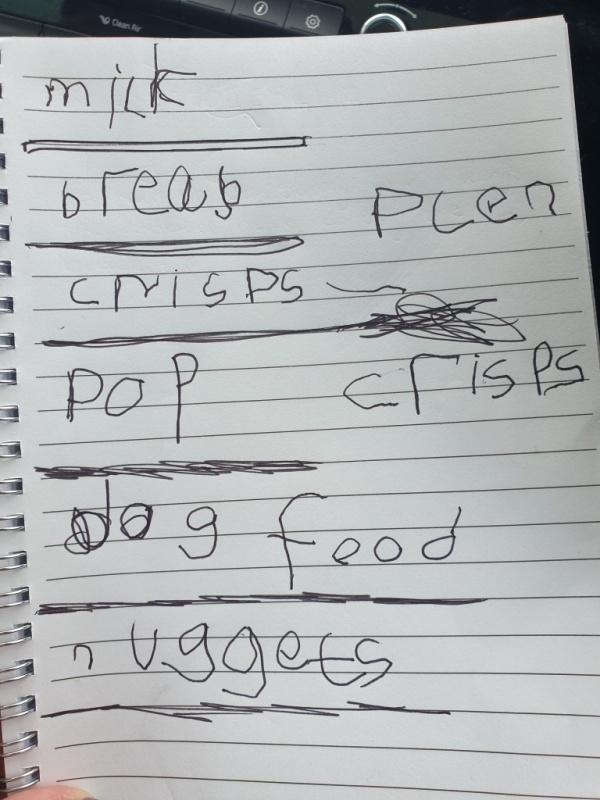 Clean Air
milk
breab
Plen
crisps
pop
crisps
dog feod
nuggets